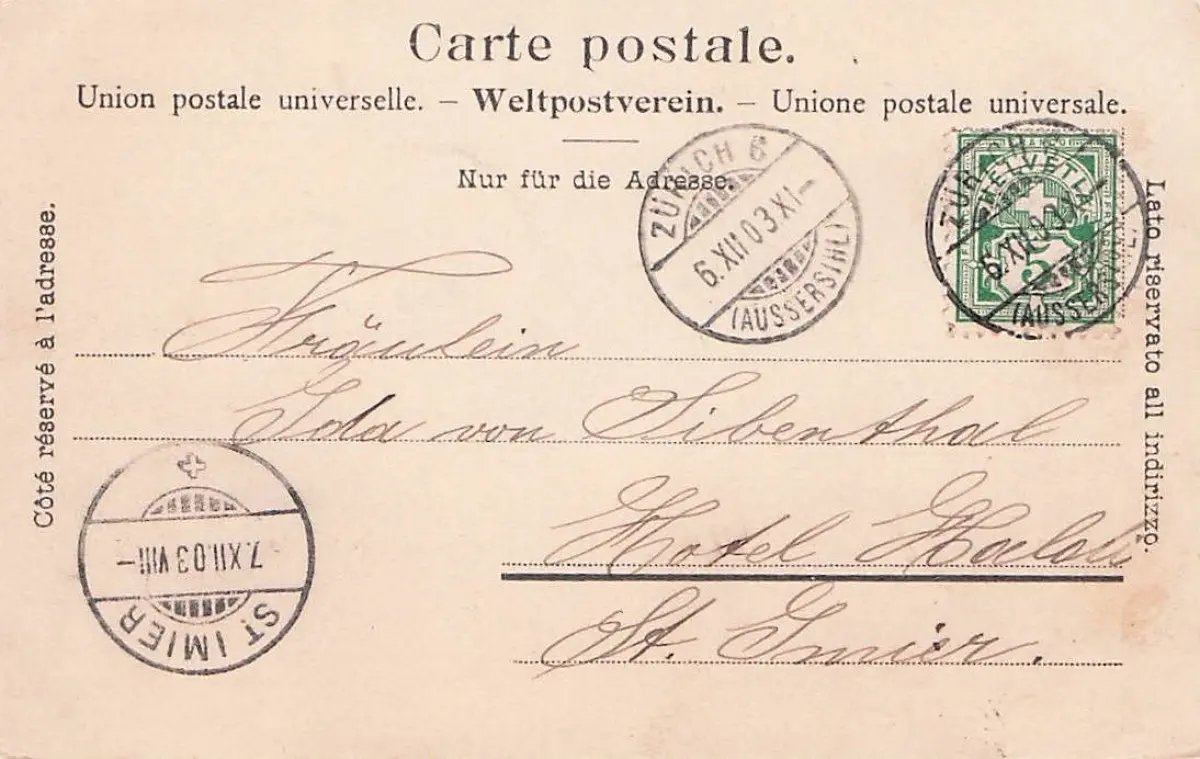 Carte postale.
Union postale universelle. – Weltpostverein. – Unione postale universale.
Nur für die Adresse.
Côté réservé à l'adresse.
Lato riservato all indirizzo.
ZÜRICH 6
6.XII.03.XI–
(AUSSERSIHL)
ZÜRICH
HELVETIA
6.XII.03.XI
5
(AUSSERSIHL)
Fräulein
Ida von Sibenthal
Hotel
St. Imier.
7.XII.03.VIII–
ST IMIER